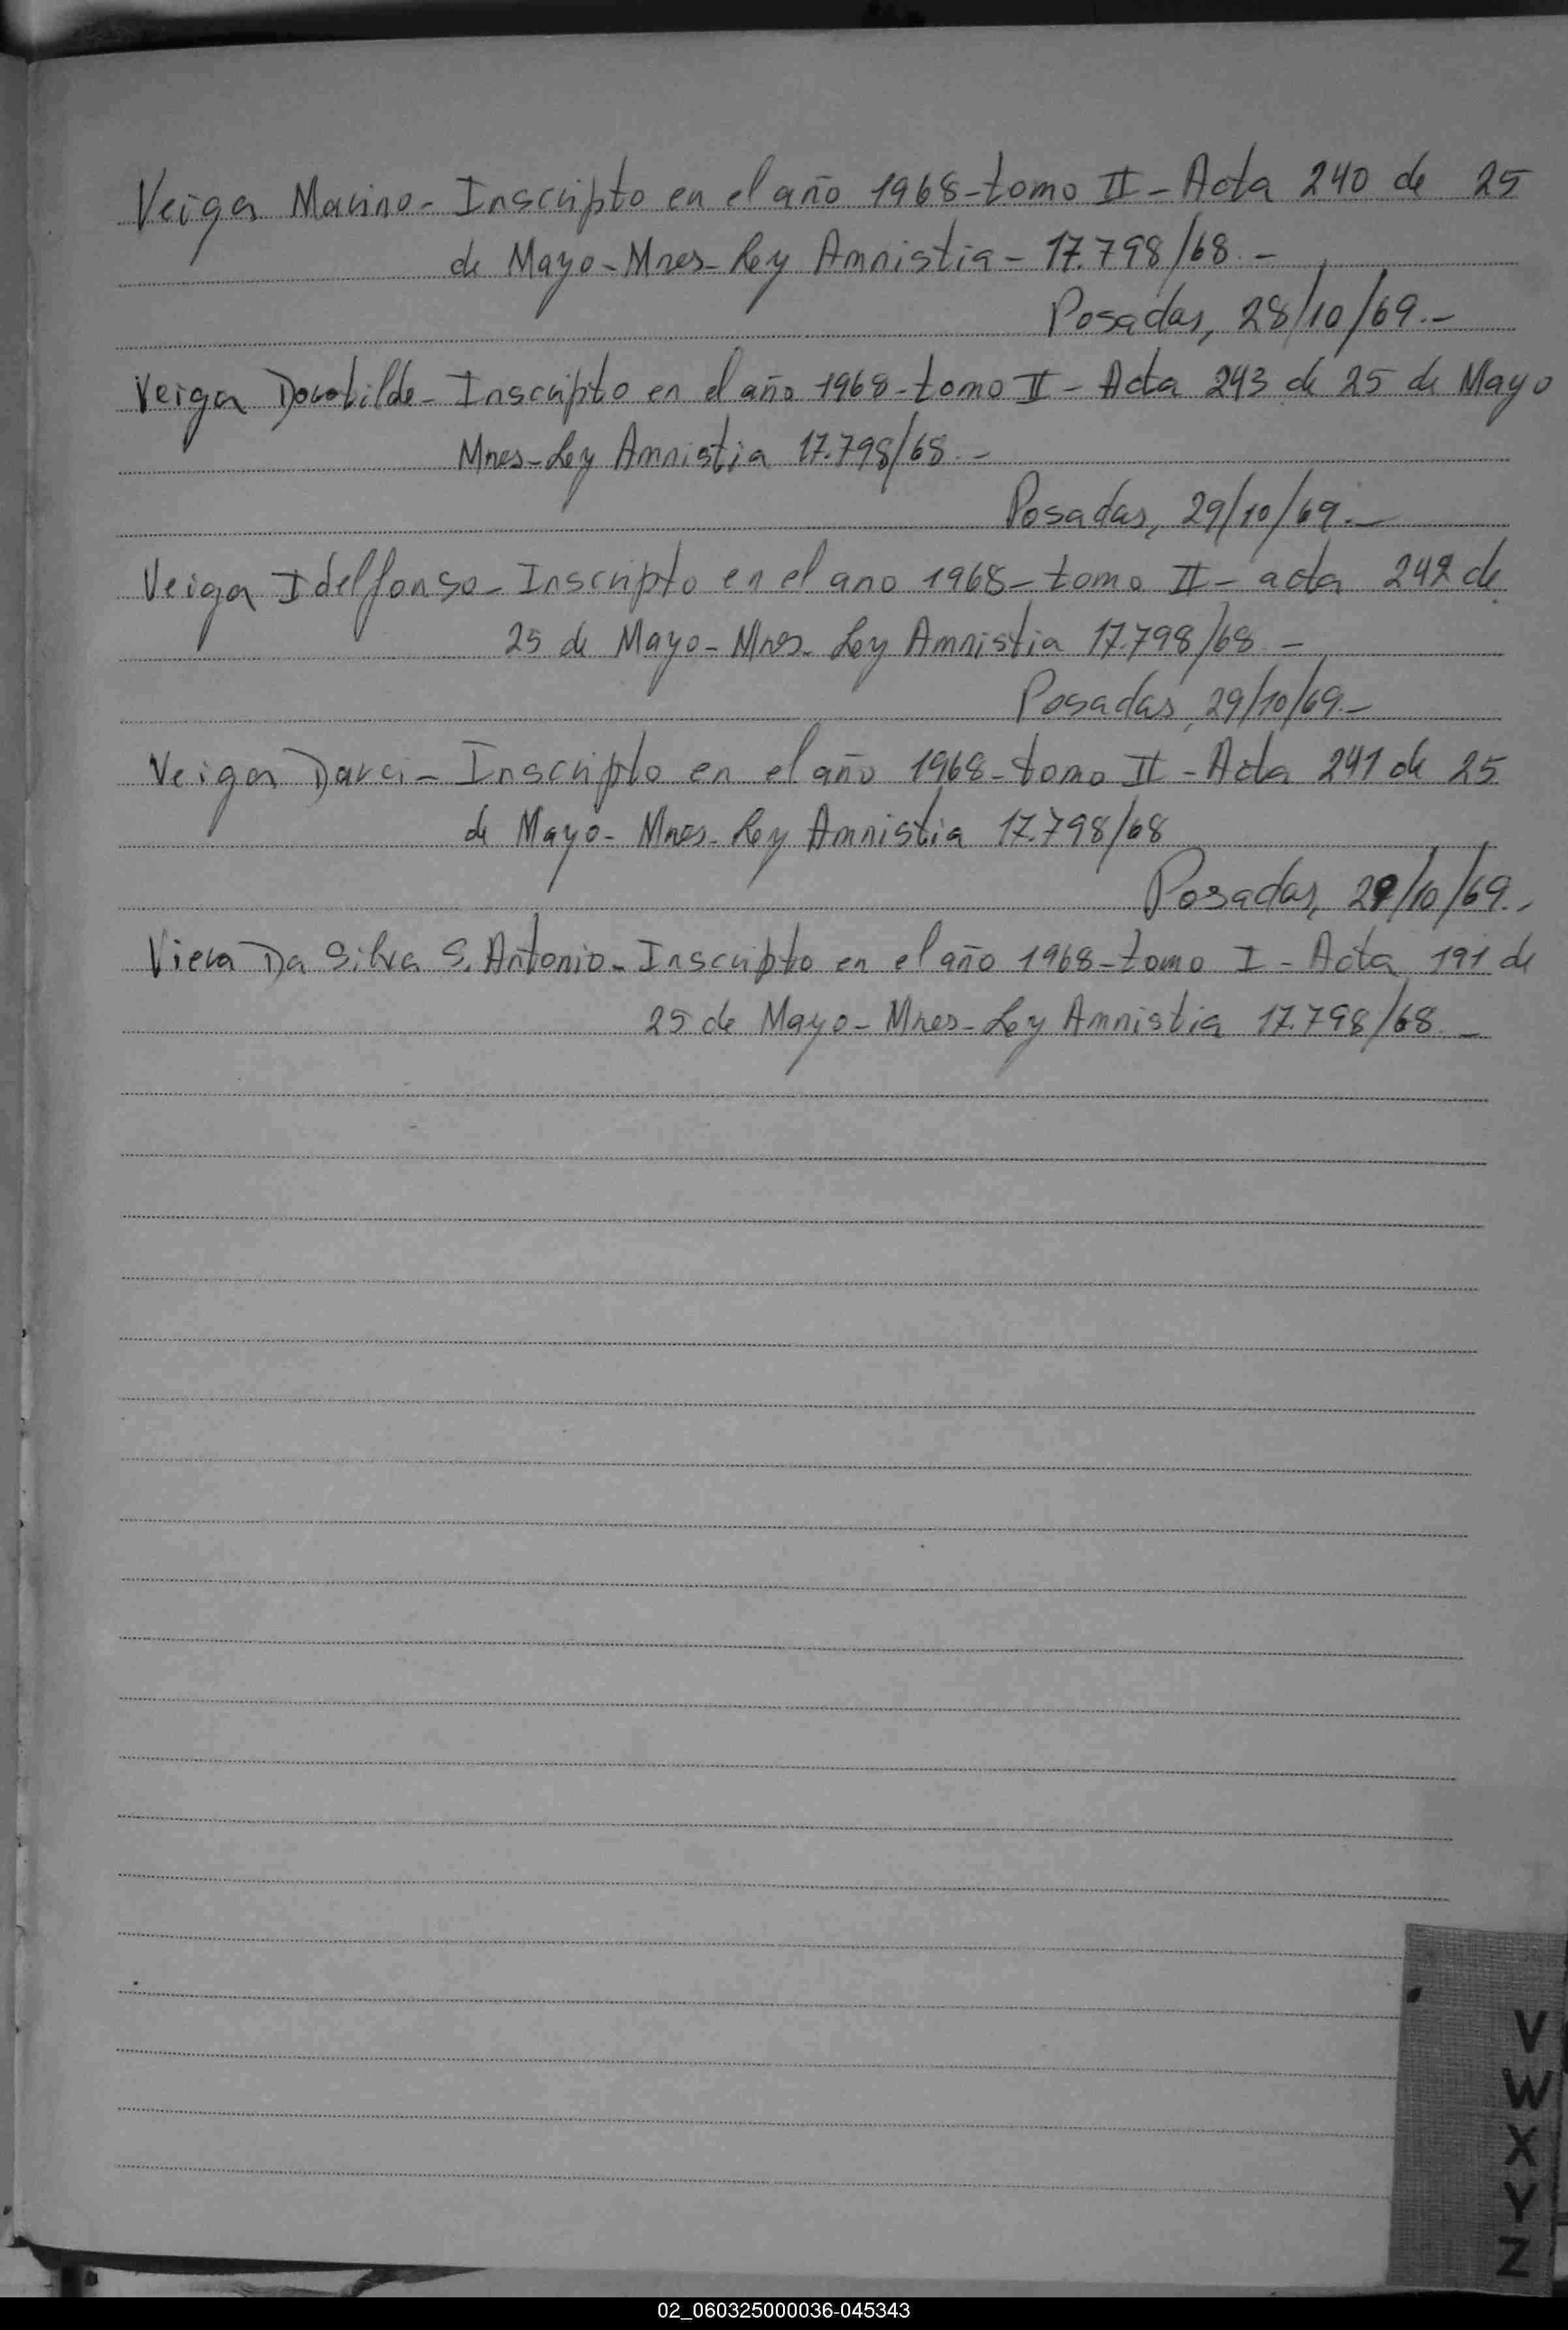 Veiga Marino - Inscripto en el año 1968 - tomo II - Acta 240 de 25
de Mayo - Mnes - Ley Amnistia - 17.798/68. -
Posadas, 28/10/69. -
Veiga Dorotilde - Inscripto en el año 1968 - tomo II - Acta 243 de 25 de Mayo
Mnes - Ley Amnistia 17.798/68. -
Posadas, 29/10/69. -
Veiga Idelfonso - Inscripto en el ano 1968 - tomo II - acta 242 de
25 de Mayo - Mnes - Ley Amnistia 17.798/68 -
Posadas, 29/10/69. -
Veiga Darci - Inscripto en el año 1968 - tomo II - Acta 241 de 25
de Mayo - Mnes - Ley Amnistia 17.798/68
Posadas, 29/10/69. -
Viera Da Silva S. Antonio - Inscripto en el año 1968 - tomo I - Acta 191 de
25 de Mayo - Mnes - Ley Amnistia 17.798/68. -
V
W
X
Y
Z
02_060325000036-045343